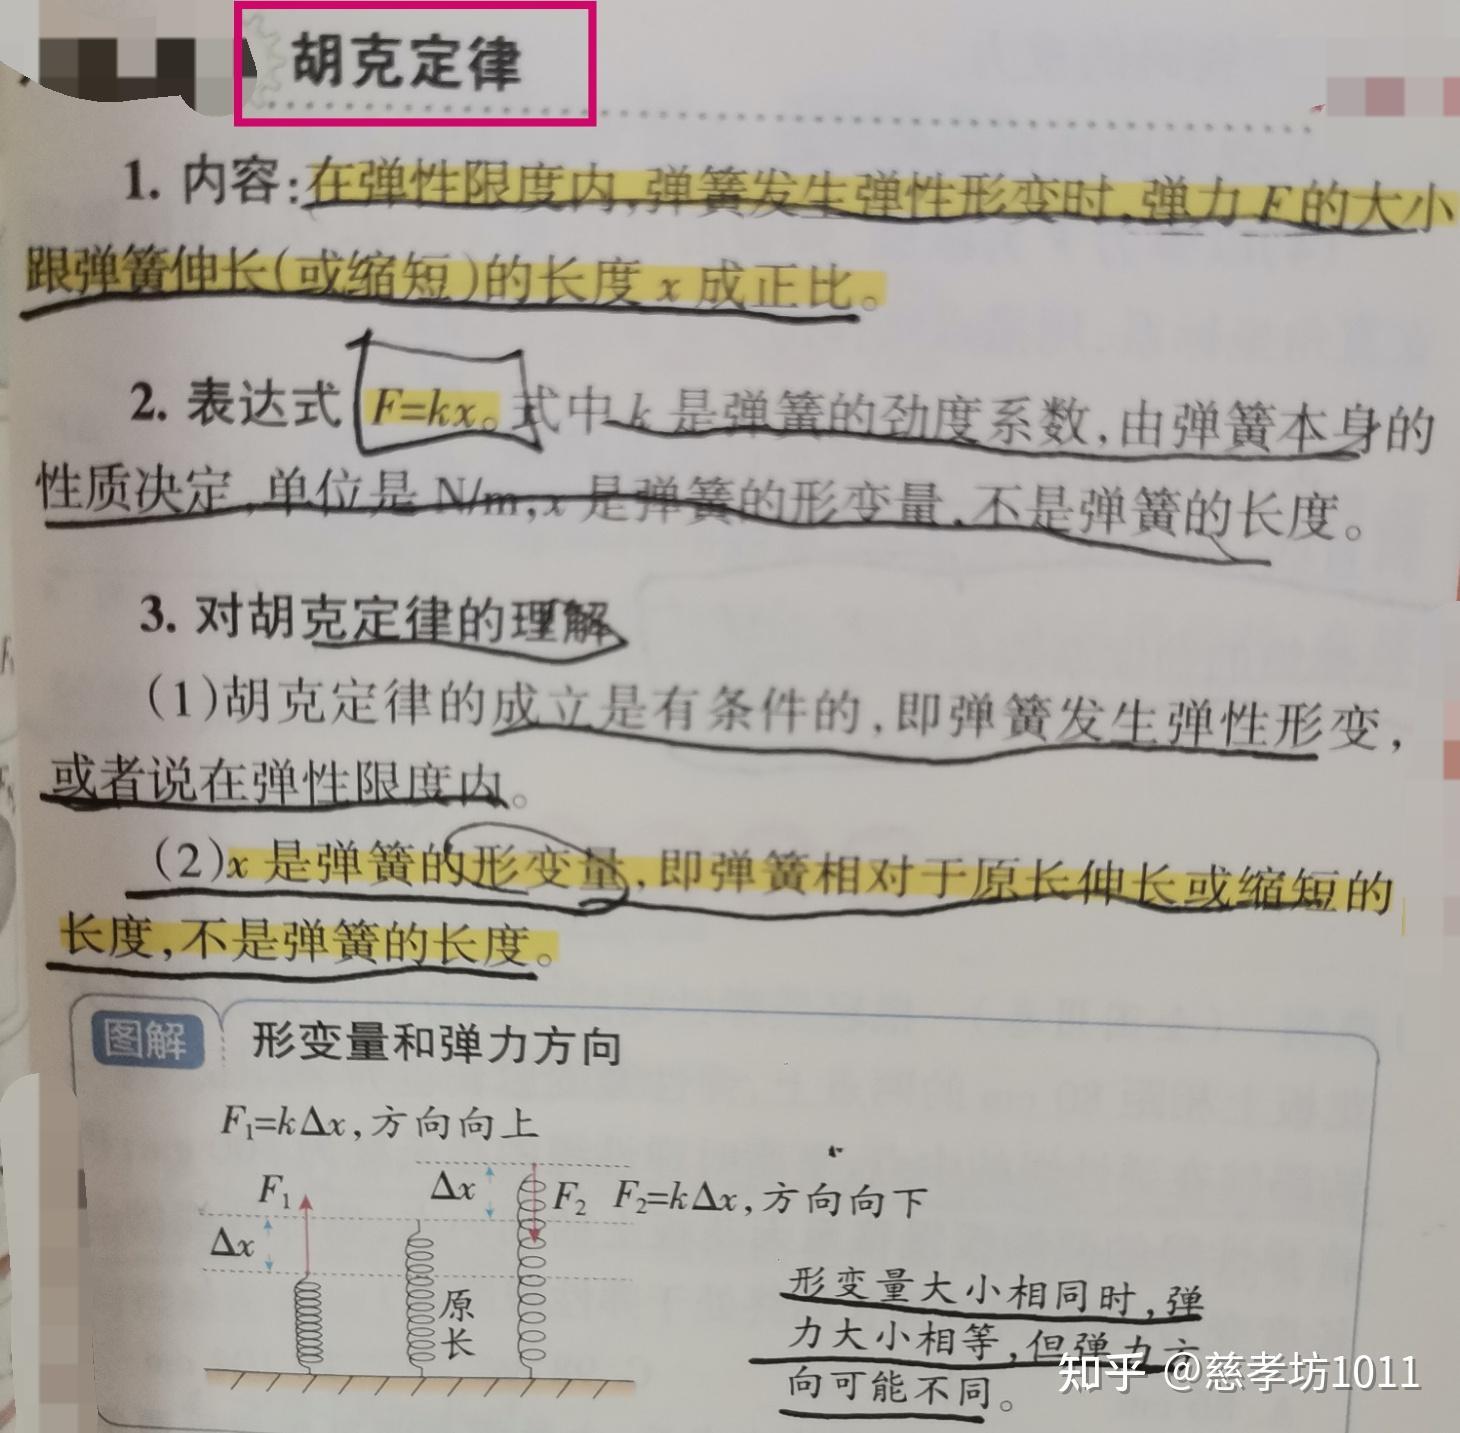 胡克定律
1. 内容:在弹性限度内,弹簧发生弹性形变时,弹力 F 的大小
跟弹簧伸长(或缩短)的长度 x 成正比。
2. 表达式 F=kx。式中 k 是弹簧的劲度系数,由弹簧本身的
性质决定,单位是 N/m,x 是弹簧的形变量,不是弹簧的长度。
3. 对胡克定律的理解
(1)胡克定律的成立是有条件的,即弹簧发生弹性形变,
或者说在弹性限度内。
(2)x 是弹簧的形变量,即弹簧相对于原长伸长或缩短的
长度,不是弹簧的长度。
图解 形变量和弹力方向
F₁=kΔx,方向向上
F₁ Δx F₂ F₂=kΔx,方向向下
Δx
原
长
形变量大小相同时,弹
力大小相等,但弹力方
向可能不同。
知乎 @慈孝坊1011